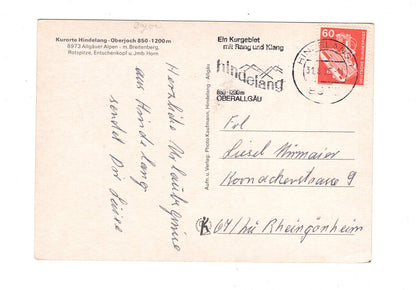 Kurorte Hindelang - Oberjoch 850-1200 m
8973 Allgäuer Alpen - m. Breitenberg,
Rotspitze, Entschenkopf u. Jmb. Horn
Herzliche Urlaubsgrüsse
aus Hindelang
sendet Dir Deine
Aufn. u. Verlag: Photo Kaufmann, Hindelang - Allgäu
Ein Kurgebiet
mit Rang und Klang
hindelang
850-1200m
OBERALLGÄU
HINDELANG
60
Frl
Liesel
Kornackerstrasse 9
67 Rheingönheim